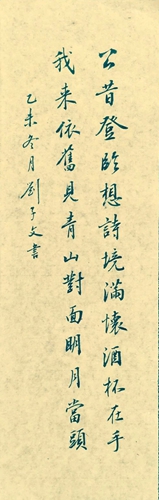 公昔登臨想詩境滿懷酒杯在手
我来依舊見青山對面明月當頭
乙未冬月劉子文書